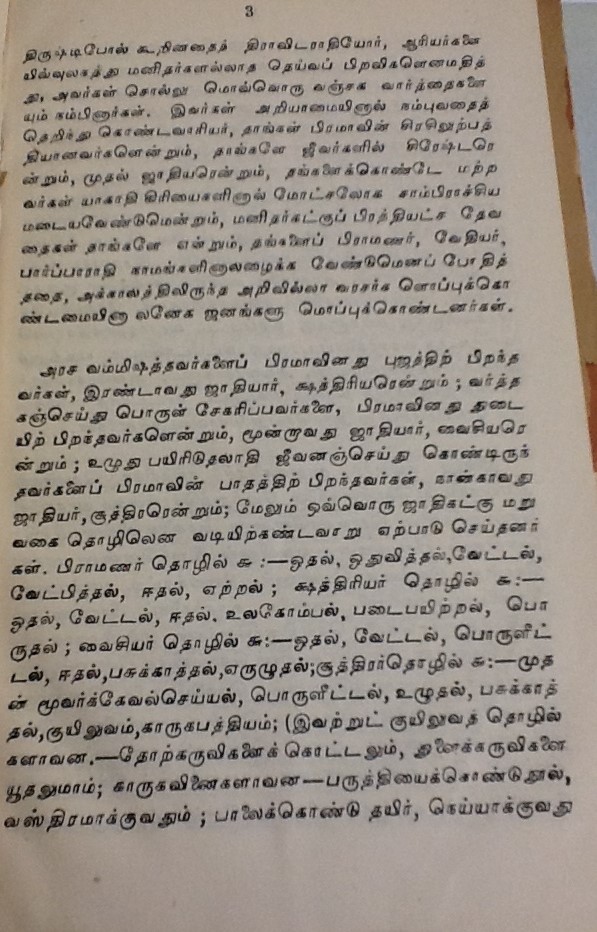 3
திருஷ்டிபோல் கூறினதைத் திராவிடராதியோர், ஆரியர்களை
யிவ்வுலகத்து மனிதர்களல்லாத தெய்வப் பிறவிகளெனமதித்
து, அவர்கள் சொல்லு மொவ்வொரு வஞ்சக வார்த்தைகளை
யும் நம்பினார்கள். இவர்கள் அறியாமையினால் நம்புவதைத்
தெரிந்து கொண்டவாரியர், தாங்கள் பிரமாவின் சிரசிலுற்பத்
தியானவர்களென்றும், தாங்களே ஜீவர்களில் சிரேஷ்டரெ
ன்றும், முதல் ஜாதியரென்றும், தங்களைக்கொண்டே மற்ற
வர்கள் யாகாதி கிரியைகளினால் மோட்சலோக சாம்பிராச்சிய
மடையவேண்டுமென்றும், மனிதர்கட்குப் பிரத்தியட்ச தேவ
தைகள் தாங்களே என்றும், தங்களைப் பிராமணர், வேதியர்,
பார்ப்பாராதி நாமங்களினாலழைக்க வேண்டுமெனப் போதித்
ததை, அக்காலத்திலிருந்த அறிவில்லா வரசர்க ளொப்புக்கொ
ண்டமையினா லனேக ஜனங்களு மொப்புக்கொண்டனர்கள்.
அரச வம்மிஷத்தவர்களைப் பிரமாவினது புஜத்திற் பிறந்த
வர்கள், இரண்டாவது ஜாதியார், க்ஷத்திரியரென்றும் ; வர்த்த
கஞ்செய்து பொருள் சேகரிப்பவர்களை, பிரமாவினது துடை
யிற் பிறந்தவர்களென்றும், மூன்றாவது ஜாதியார், வைசியரெ
ன்றும் ; உழுது பயிரிடுதலாதி ஜீவனஞ்செய்து கொண்டிருந்
தவர்களைப் பிரமாவின் பாதத்திற் பிறந்தவர்கள், நான்காவது
ஜாதியர், சூத்திரரென்றும்; மேலும் ஒவ்வொரு ஜாதிகட்கு மறு
வகை தொழிலென வடியிற்கண்டவாறு ஏற்பாடு செய்தனர்
கள். பிராமணர் தொழில் சு :—ஓதல், ஓதுவித்தல்,வேட்டல்,
வேட்பித்தல், ஈதல், ஏற்றல் ; க்ஷத்திரியர் தொழில் சு :—
ஓதல், வேட்டல், ஈதல். உலகோம்பல், படைபயிற்றல், பொ
ருதல் ; வைசியர் தொழில் சு:—ஓதல், வேட்டல், பொருளீட்
டல், ஈதல்,பசுக்காத்தல்,ஏருழுதல்;சூத்திரர்தொழில் சு:—முத
ன் மூவர்க்கேவல்செய்யல், பொருளீட்டல், உழுதல், பசுக்காத்
தல்,குயிலுவம்,காருகபத்தியம்; (இவற்றுட் குயிலுவத் தொழில்
களாவன.—தோற்கருவிகளைக் கொட்டலும், துளைக்கருவிகளை
யூதலுமாம்; காருகவினைகளாவன—பருத்தியைக்கொண்டுநூல்,
வஸ்திரமாக்குவதும் ; பாலைக்கொண்டு தயிர், நெய்யாக்குவது